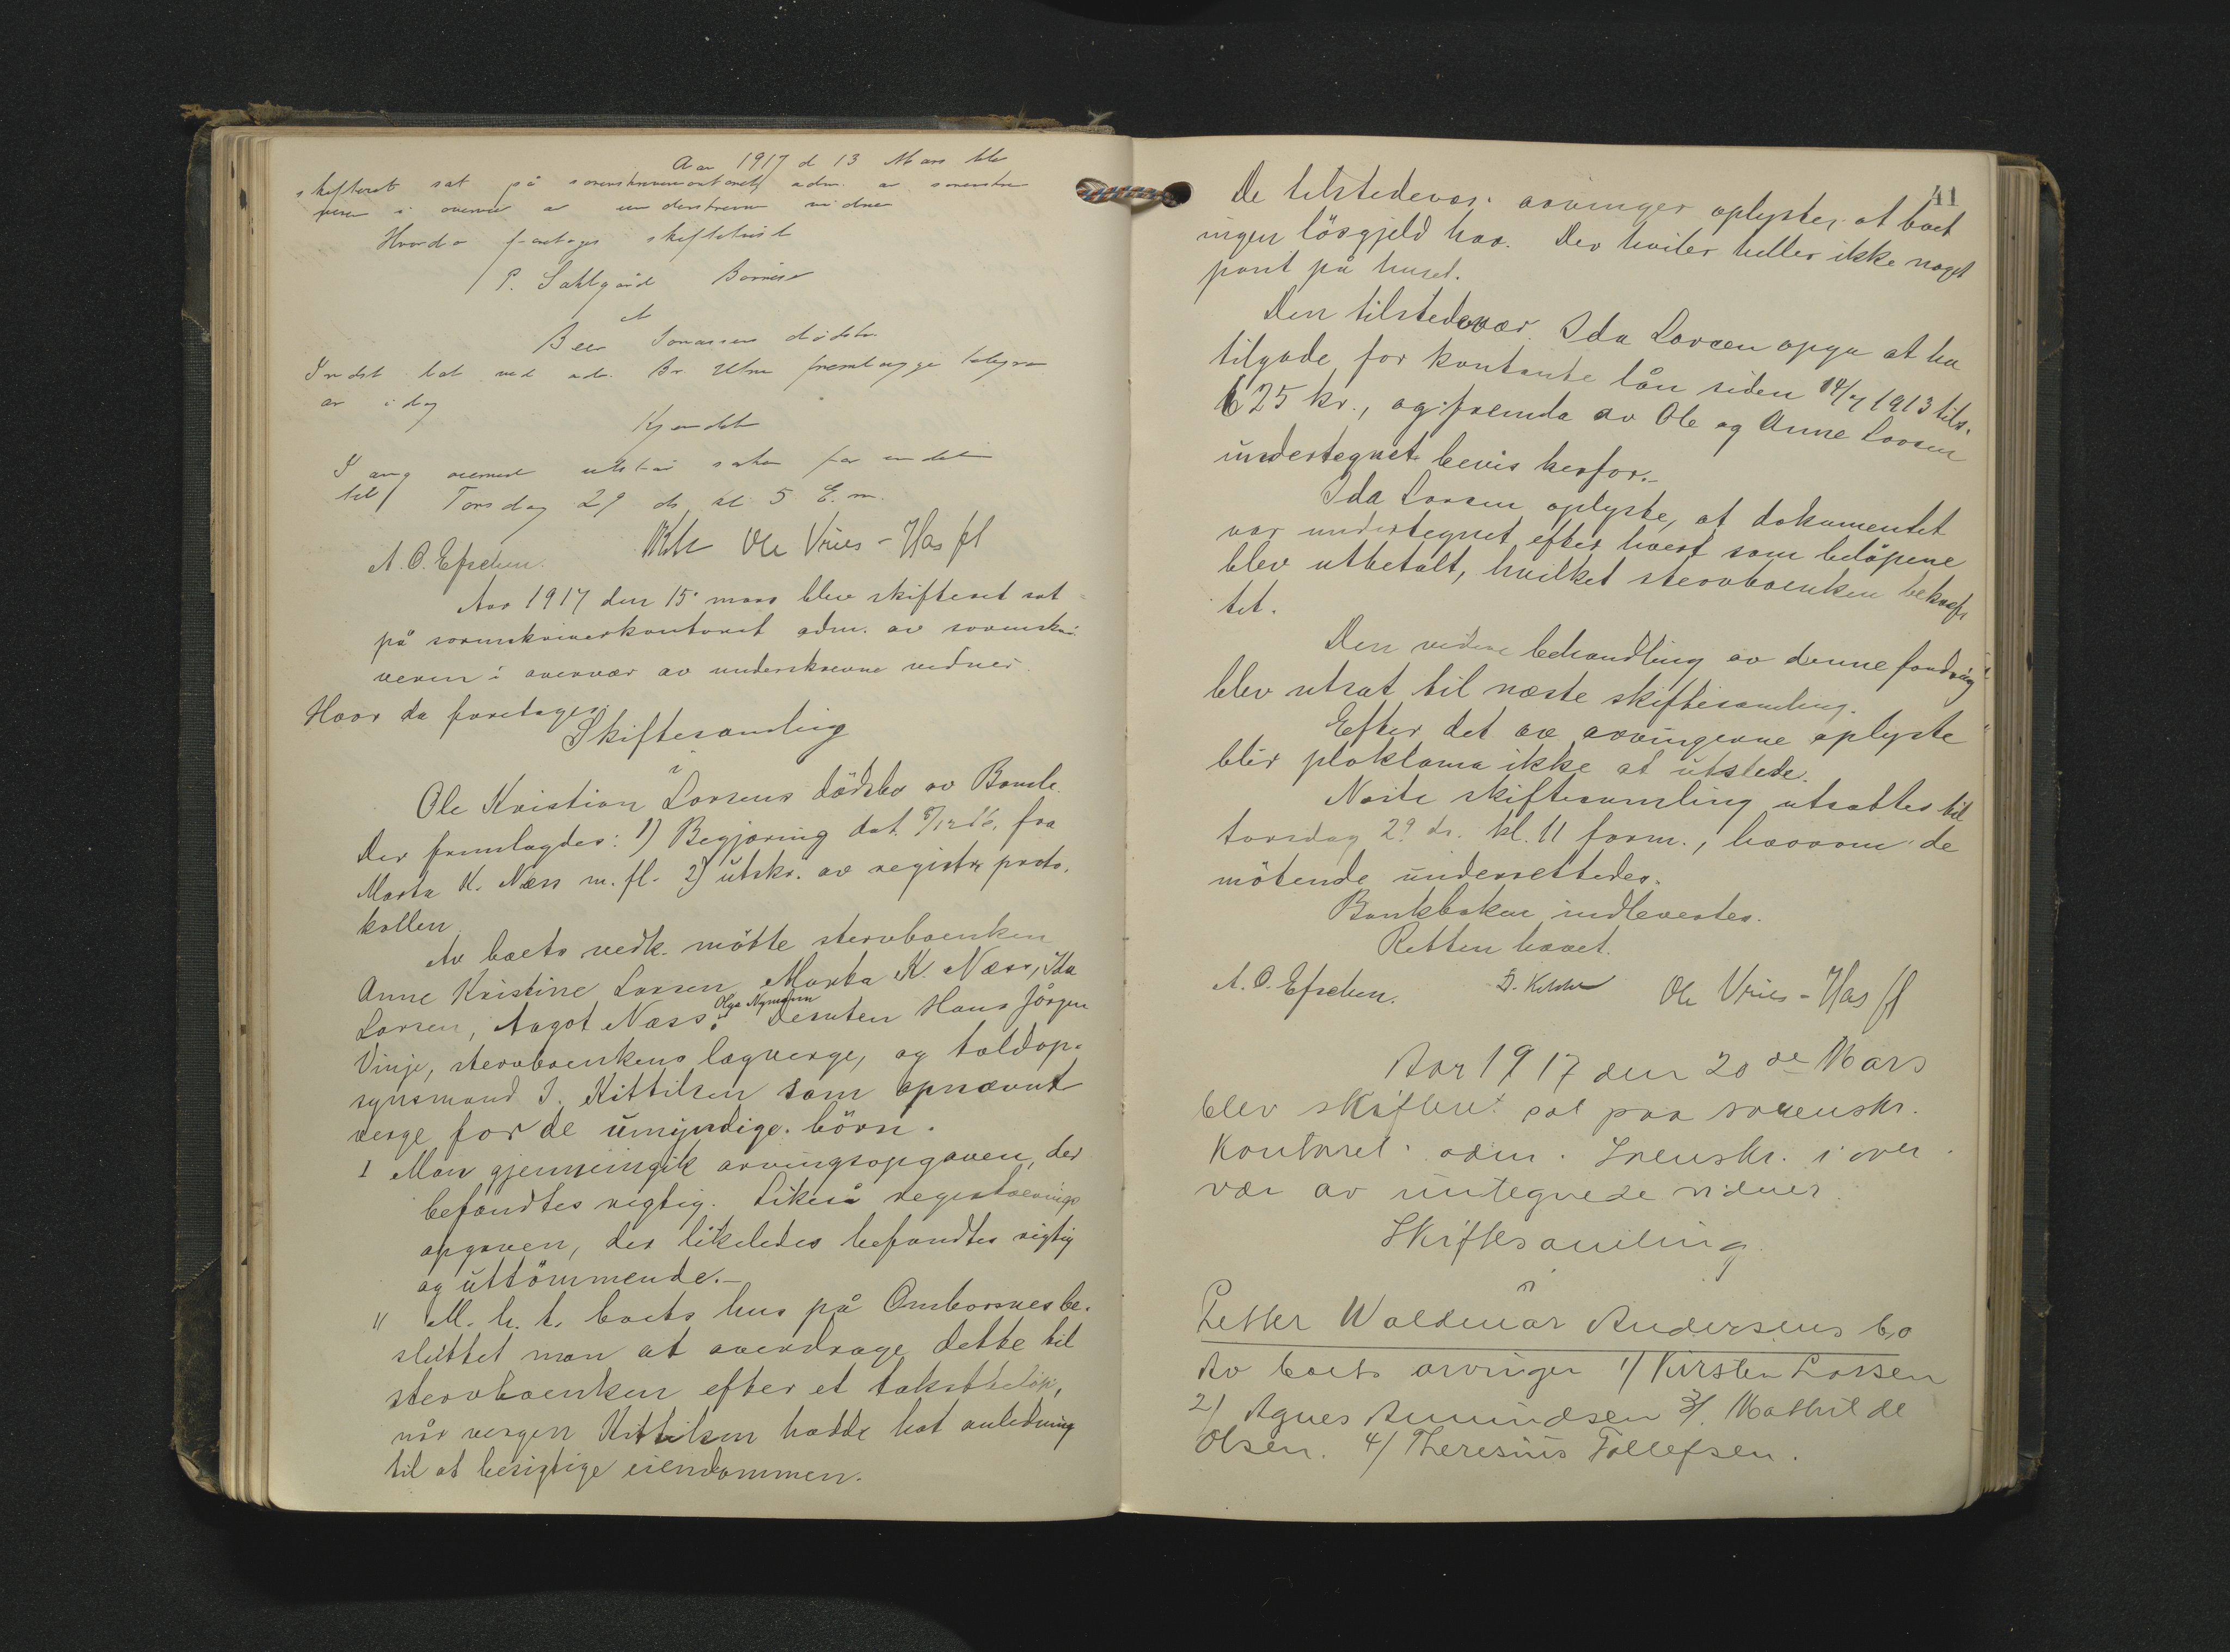 Aar 1917 d 13 Mars ble
skifteret sat på sorenskriverkontoret adm. av sorenskri
veren i overvær av underskrevne vidner
Hvorda foretages skiftetvist
P. Dahlgård
Jonassens dødsbo
ar idag
Kjendelse
til Torsdag 29 ds kl 5 E.m.
A. O. Efschen. Ole Vries-Hasfl
Aar 1917 den 15. mars blev skifteret sat
på sorenskriverkontoret adm. av sorenskri
veren i overvær av underskrevne vidner.
Hvor da foretages
Skiftesamling
i
Ole Kristian Larsens dödsbo av Bamle.
Der fremlagdes: 1) Begjæring dat. fra
Marta K. Næss m. fl. 2) utskr. av registr. proto.
kollen.
Av boets vedk. mötte stervboenken
Anne Kristine Larsen, Marta K. Næss, Ida
Larsen, Aagot Næss, Olga Nymann Desuten Hans Jörgen
Vinje, stervboenkens lagverge, og toldop-
synsmand I. Kittilsen som opnævnt
verge for de umyndige börn.
I Man gjennemgik arvingsopgaven, der
befandtes rigtig. Likeså registrerings
opgaven, der likeledes befandtes rigtig
og uttömmende.-
" M. h. t. boets hus på Omborsnes be-
sluttet man at overdrage dette til
stervboenken efter et takstbelöp,
når vergen Kittilsen hadde hat anledning
til at besigtige eiendommen.
41
De tilstedevær. arvinger oplyster at boet
ingen lösgjeld har. Der hviler heller ikke noget
pant på huset.
Den tilstedevær. Ida Larsen opga at ha
tilgode for kontante lån siden 14/7 1913 tils.
625 kr., og fremla av Ole og Anne Larsen
undertegnet bevis herfor.-
Ida Larsen oplyste, at dokumentet
var undertegnet efter hvert som belöpene
blev utbetalt, hvilket stervboenken bekræf-
tet.
Den videre behandling av denne fordring
blev utsat til næste skiftesamling.
Efter det av arvingerne oplyste
blir ploklama ikke at utstede.
Næste skiftesamling utsattes til
torsdag 29 ds. kl. 11 form., hvorom de
mötende underrettedes.
Bankboken indlevertes.
Retten hævet.
A. O. Efschen. Ole Vries-Hasfl
Aar 1917 den 20de Mars
blev skifteret sat paa sorenskr.
kontoret adm. Sorenskr. i over
vær av untegnede vidner.
Skiftesamling
i
Petter Waldemar Andersens bo
Av boets arvinger 1/ Kirsten Larsen
2/ Agnes Amundsen 3/. Mathilde
Olsen. 4/ Theresius Tollefsen.